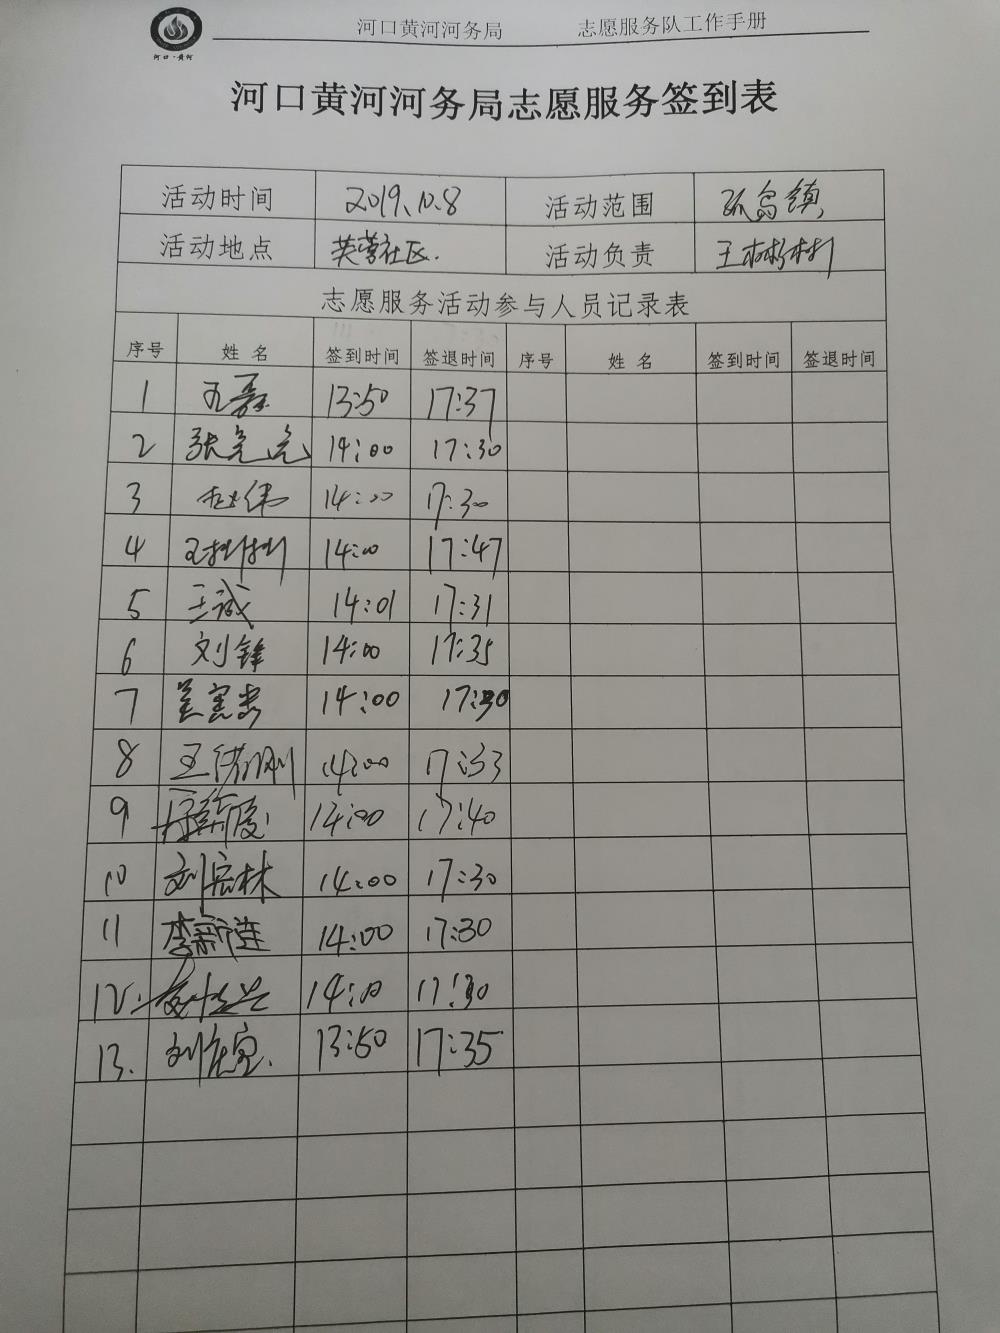 河口黄河河务局 志愿服务队工作手册
河口·黄河
河口黄河河务局志愿服务签到表
活动时间 2019.10.8 活动范围 孤岛镇
活动地点 芙蓉社区. 活动负责 王彬彬
志愿服务活动参与人员记录表
序号 姓名 签到时间 签退时间 序号 姓名 签到时间 签退时间
1 13:50 17:37
2 张亮亮 14:00 17:30
3 赵伟 14:00 17:30
4 王彬彬 14:00 17:47
5 王诚 14:01 17:31
6 刘锋 14:00 17:35
7 14:00 17:30
8 14:00 17:33
9 14:00 17:40
10 刘宏林 14:00 17:30
11 李新连 14:00 17:30
12. 14:00 17:30
13. 13:50 17:35